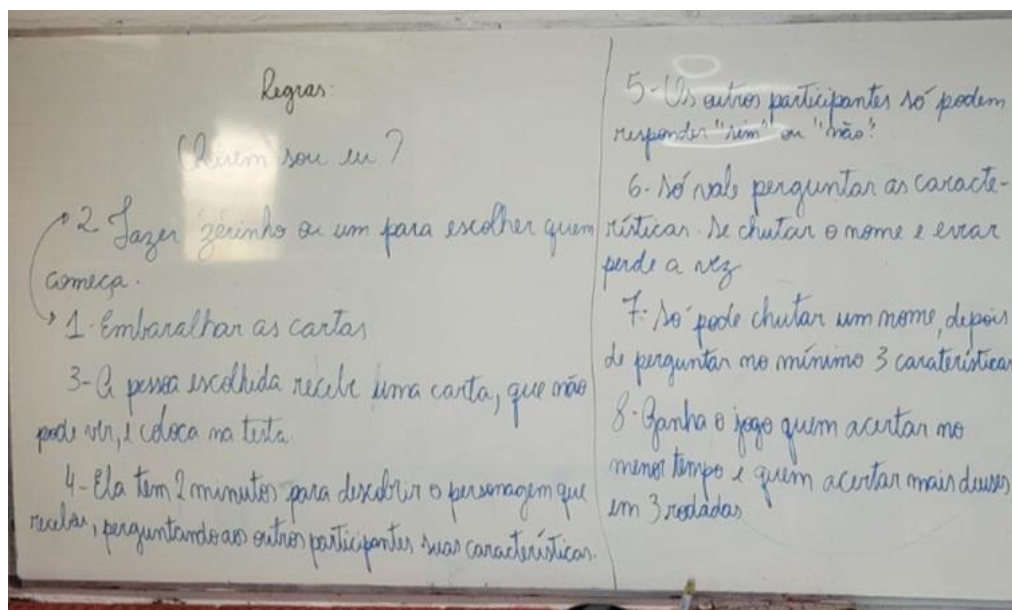 Regras:
Quem sou eu?
2. Fazer zerinho ou um para escolher quem
começa.
1. Embaralhar as cartas
3- A pessoa escolhida recebe uma carta, que não
pode ver, e coloca na testa.
4- Ela tem 2 minutos para descobrir o personagem que
recebeu, perguntando aos outros participantes suas características.
5- Os outros participantes só podem
responder "sim" ou "não".
6- Só vale perguntar as caracte-
rísticas. Se chutar o nome e errar
perde a vez
7- Só pode chutar um nome, depois
de perguntar no mínimo 3 caraterísticas
8- Ganha o jogo quem acertar no
menor tempo e quem acertar mais deuses
em 3 rodadas